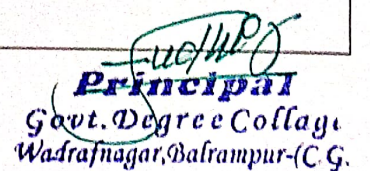 Principal
Govt. Degree Collage
Wadrafnagar, Balrampur-(C.G.